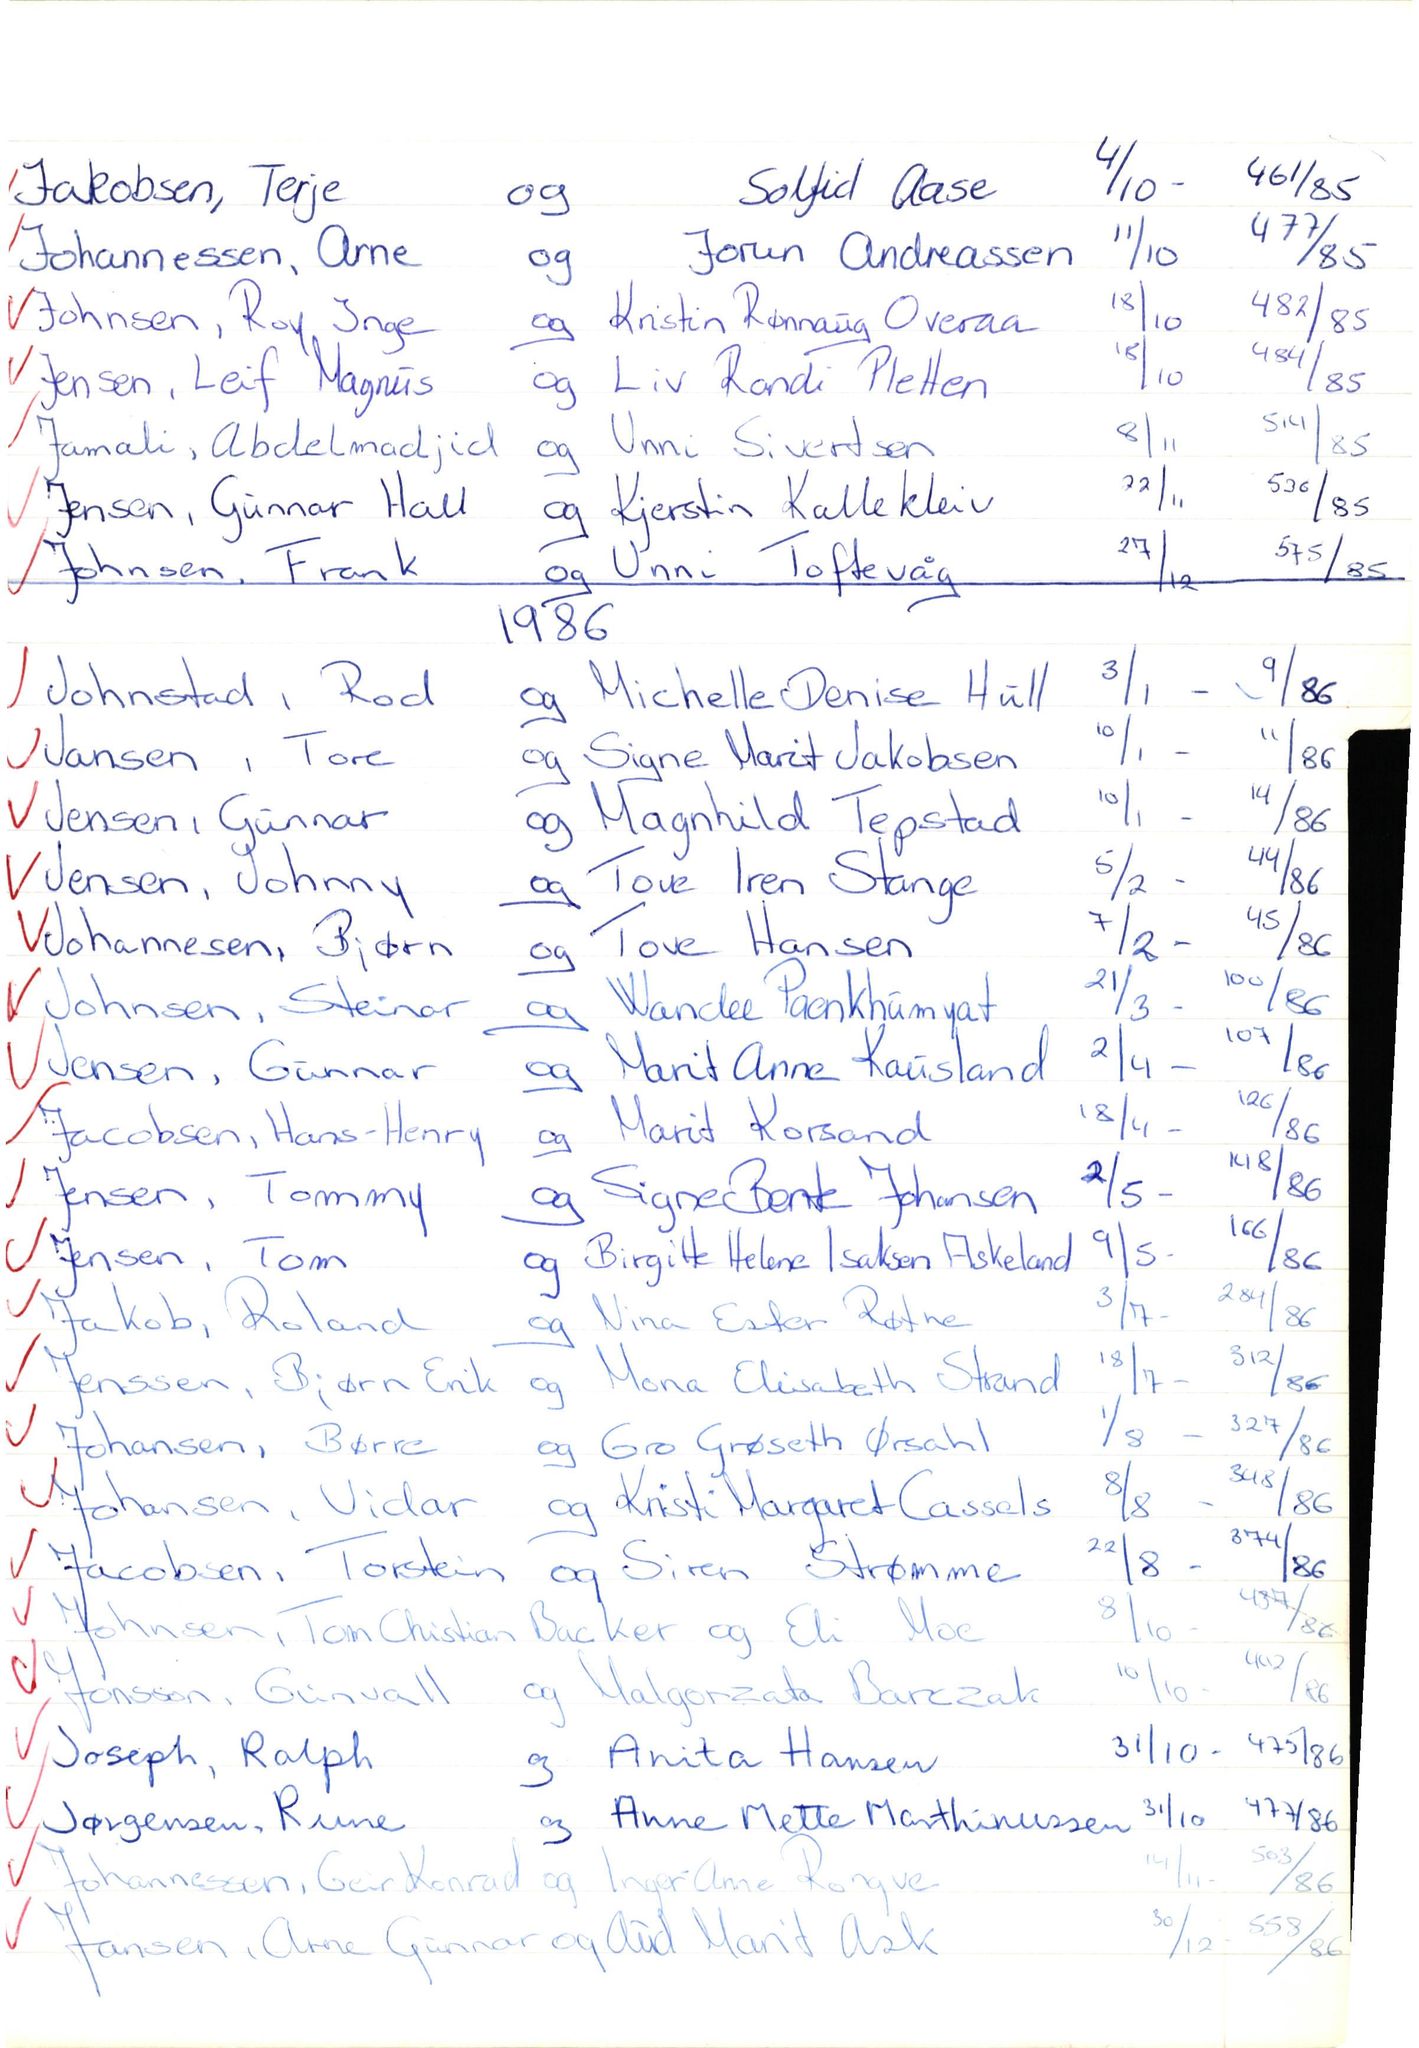 Jakobsen, Terje og Solfid Aase 4/10 - 461/85
Johannessen, Arne og Jorun Andreassen 11/10 477/85
Johnsen, Roy Inge og Kristin Rønnaug Overaa 18/10 482/85
Jensen, Leif Magnus og Liv Randi Pletten 18/10 484/85
Jamali, Abdelmadjid og Unni Sivertsen 8/11 514/85
Jensen, Gunnar Hall og Kjerstin Kallekleiv 22/11 536/85
Johnsen, Frank og Unni Toftevåg 27/12 575/85
1986
Johnstad, Rod og Michelle Denise Hull 3/1 - 9/86
Jansen, Tore og Signe Marit Jakobsen 10/1 - 11/86
Jensen, Gunnar og Magnhild Tepstad 10/1 - 14/86
Jensen, Johnny og Tove Iren Stange 5/2 - 44/86
Johannesen, Bjørn og Tove Hansen 7/2 - 45/86
Johnsen, Steinar og Wandee Paenkhumyat 21/3 - 100/86
Jensen, Gunnar og Marit Anne Kausland 2/4 - 107/86
Jacobsen, Hans-Henry og Marit Korsand 18/4 - 126/86
Jensen, Tommy og Signe Bente Johansen 2/5 - 148/86
Jensen, Tom og Birgitte Helene Isaksen Askeland 9/5 - 166/86
Jakob, Roland og Nina Ester Røtne 3/7 - 284/86
Jenssen, Bjørn Erik og Mona Elisabeth Strand 18/7 - 312/86
Johansen, Børre og Gro Grøseth Ørsahl 1/8 - 327/86
Johansen, Vidar og Kristi Margaret Cassels 8/8 - 348/86
Jacobsen, Torstein og Siren Strømme 22/8 - 374/86
Johnsen, Tom Christian Backer og Eli Moe 8/10 - 437/86
Jonsson, Gunvall og Malgorzata Barczak 10/10 - 442/86
Joseph, Ralph og Anita Hansen 31/10 - 475/86
Jørgensen, Rune og Anne Mette Marthinussen 31/10 477/86
Johannessen, Geir Konrad og Inger Anne Rongve 14/11 - 503/86
Jansen, Arne Gunnar og Aud Marit Ask 30/12 - 558/86